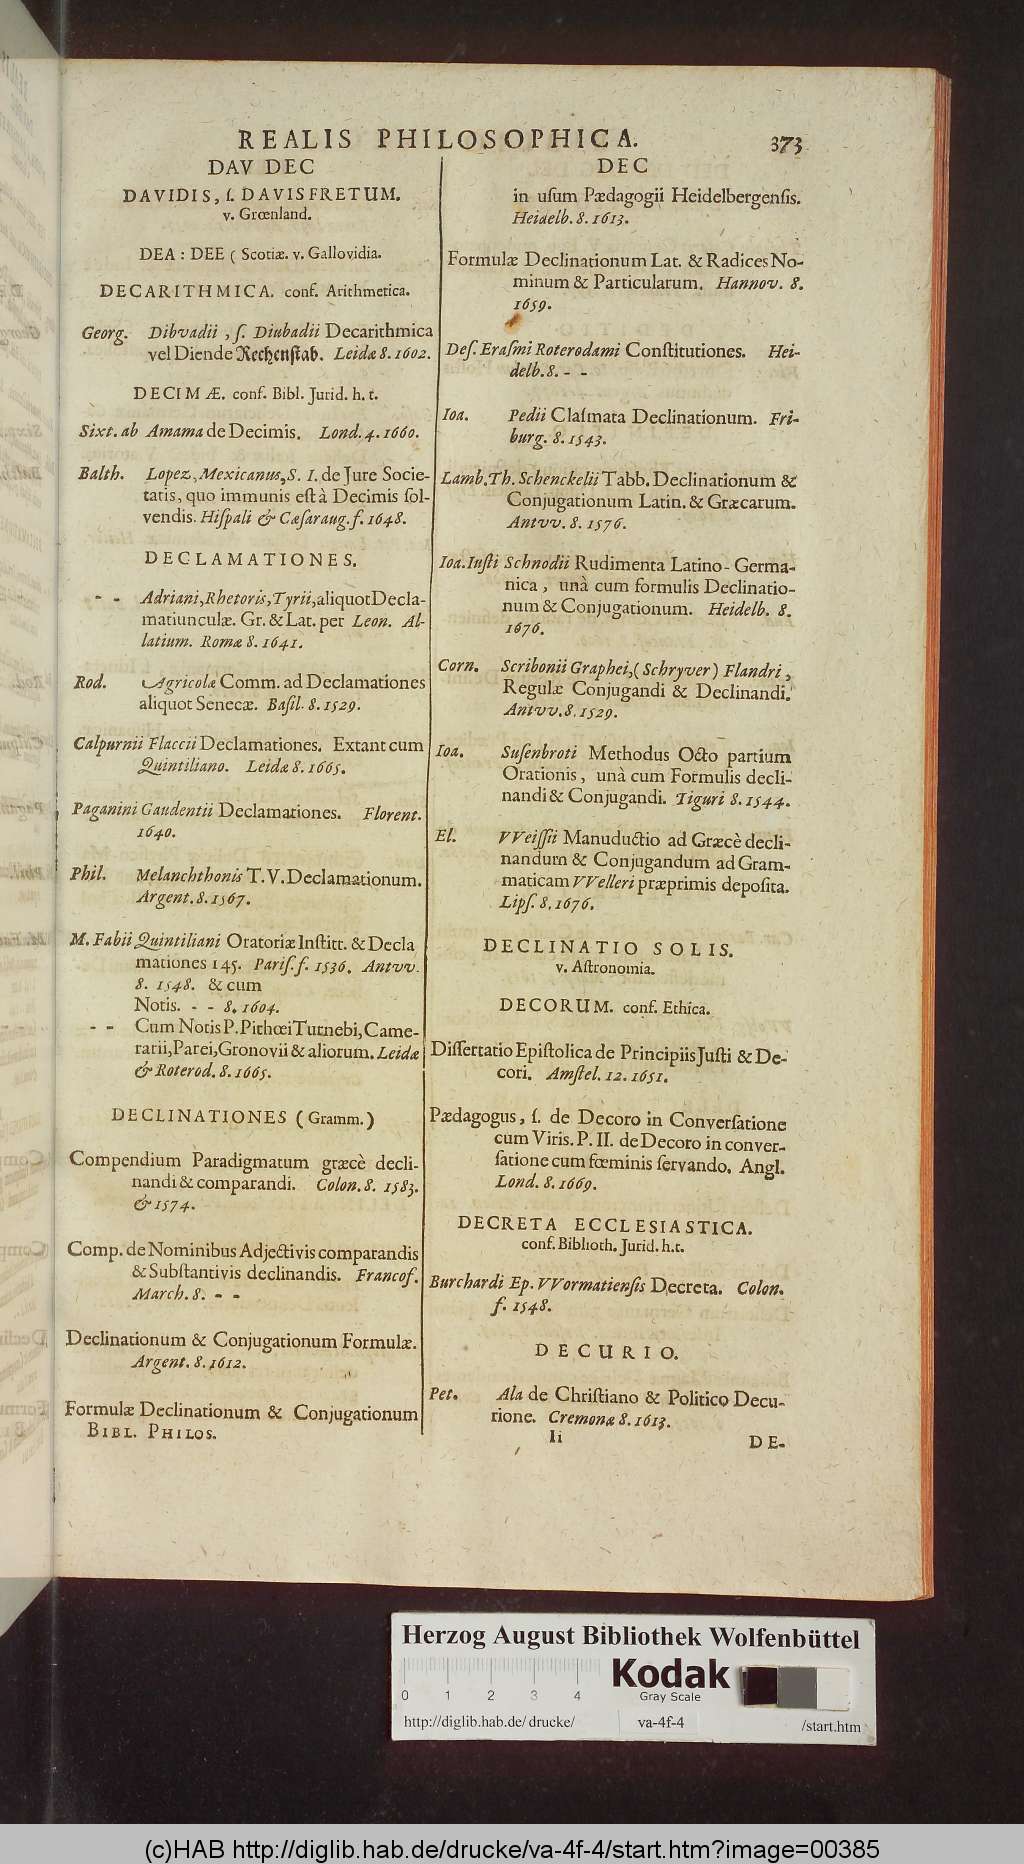 REALIS PHILOSOPHICA. 373
DAV DEC
DAVIDIS, ſ. DAVISFRETUM.
v. Grœnland.
DEA: DEE (Scotiæ. v. Gallovidia.
DECARITHMICA. conf. Arithmetica.
Georg. Dibvadii, ſ. Diubadii Decarithmica
vel Diende Rechenſtab. Leidæ 8. 1602.
DECIMÆ. conf. Bibl. Jurid. h. t.
Sixt. ab Amama de Decimis. Lond. 4. 1660.
Balth. Lopez, Mexicanus, S. I. de Jure Socie-
tatis, quo immunis eſt à Decimis ſol-
vendis. Hiſpali & Cæſaraug. f. 1648.
DECLAMATIONES.
- - Adriani, Rhetoris, Tyrii, aliquot Decla-
matiunculæ. Gr. & Lat. per Leon. Al-
latium. Romæ 8. 1641.
Rod. Agricolæ Comm. ad Declamationes
aliquot Senecæ. Baſil. 8. 1529.
Calpurnii Flaccii Declamationes. Extant cum
Quintiliano. Leidæ 8. 1665.
Paganini Gaudentii Declamationes. Florent.
1640.
Phil. Melanchthonis T. V. Declamationum.
Argent. 8. 1567.
M. Fabii Quintiliani Oratoriæ Inſtitt. & Decla
mationes 145. Pariſ. f. 1536. Antvv.
8. 1548. & cum
Notis. - - 8. 1604.
- - Cum Notis P. Pithœi Turnebi, Came-
rarii, Parei, Gronovii & aliorum. Leidæ
& Roterod. 8. 1665.
DECLINATIONES (Gramm.)
Compendium Paradigmatum græcè decli-
nandi & comparandi. Colon. 8. 1583.
& 1574.
Comp. de Nominibus Adjectivis comparandis
& Subſtantivis declinandis. Francof.
March. 8. - -
Declinationum & Conjugationum Formulæ.
Argent. 8. 1612.
Formulæ Declinationum & Conjugationum
BIBL. PHILOS.
DEC
in uſum Pædagogii Heidelbergenſis.
Heidelb. 8. 1613.
Formulæ Declinationum Lat. & Radices No-
minum & Particularum. Hannov. 8.
1659.
Deſ. Eraſmi Roterodami Conſtitutiones. Hei-
delb. 8. - -
Ioa. Pedii Claſmata Declinationum. Fri-
burg. 8. 1543.
Lamb. Th. Schenckelii Tabb. Declinationum &
Conjugationum Latin. & Græcarum.
Antvv. 8. 1576.
Ioa. Iuſti Schnodii Rudimenta Latino-Germa-
nica, unà cum formulis Declinatio-
num & Conjugationum. Heidelb. 8.
1676.
Corn. Scribonii Graphei, (Schryver) Flandri,
Regulæ Conjugandi & Declinandi.
Antvv. 8. 1529.
Ioa. Suſenbroti Methodus Octo partium
Orationis, unà cum Formulis decli-
nandi & Conjugandi. Tiguri 8. 1544.
El. VVeiſſii Manuductio ad Græcè decli-
nandum & Conjugandum ad Gram-
maticam VVelleri præprimis depoſita.
Lipſ. 8. 1676.
DECLINATIO SOLIS.
v. Aſtronomia.
DECORUM. conf. Ethica.
Diſſertatio Epiſtolica de Principiis Juſti & De-
cori. Amſtel. 12. 1651.
Pædagogus, ſ. de Decoro in Converſatione
cum Viris. P. II. de Decoro in conver-
ſatione cum fœminis ſervando. Angl.
Lond. 8. 1669.
DECRETA ECCLESIASTICA.
conf. Biblioth. Jurid. h. t.
Burchardi Ep. VVormatienſis Decreta. Colon.
f. 1548.
DECURIO.
Pet. Ala de Chriſtiano & Politico Decu-
rione. Cremonæ 8. 1613.
Ii DE-
Herzog August Bibliothek Wolfenbüttel
0 1 2 3 4
Kodak
Gray Scale
http://diglib.hab.de/drucke/ va-4f-4 /start.htm
(c)HAB http://diglib.hab.de/drucke/va-4f-4/start.htm?image=00385